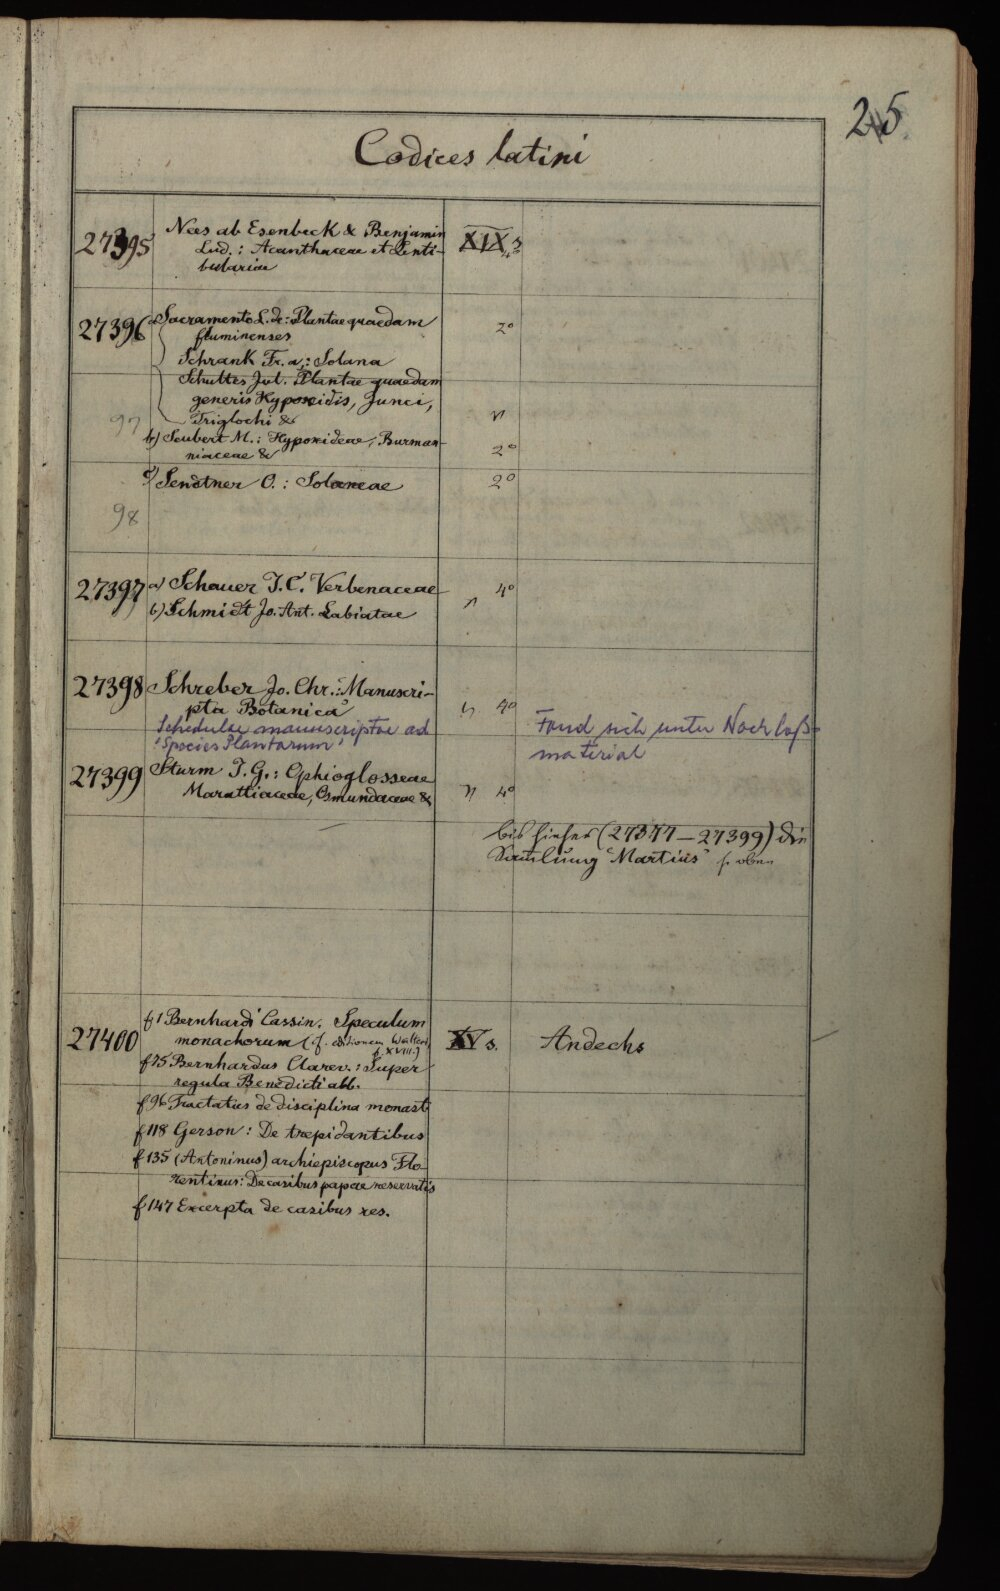 25
Codices latini
27395 Nees ab Esenbeck & Benjamin XIX s.
Lud.: Acanthaceae et Lenti-
bulariae
27396 a) Sacramento L. de: Plantae quaedam 2°
fluminenses
Schrank Fr. a.: Solana
Schultes Jul. Plantae quaedam
generis Hypoxidis, Junci,
97 Triglochi &
b) Seubert M.: Hypoxideae, Burman- 2°
niaceae &
c) Sendtner O.: Solaneae 2°
98
27397 a) Schauer J. C. Verbenaceae 4°
b) Schmidt Jo. Ant. Labiatae "
27398 Schreber Jo. Chr.: Manuscri-
pta Botanica " 4°
Schedulae manuscriptae ad Fand sich unter Nachlaß-
'Species Plantarum' material
27399 Sturm J. G.: Ophioglosseae
Marattiaceae, Osmundaceae & " 4°
bis hieher (27377 – 27399) die
Sammlung "Martius" s. oben
27400 f 1 Bernhardi Cassin. Speculum XV s. Andechs
monachorum (cf. editionem Walteri
f. XVIII.)
f 75 Bernhardus Clarev.: Super
regula Benedicti abb.
f 96 Tractatus de disciplina monast.
f 118 Gerson: De trepidantibus
f 135 (Antoninus) archiepiscopus Flo-
rentinus: De casibus papae reservatis
f 147 Excerpta de casibus res.